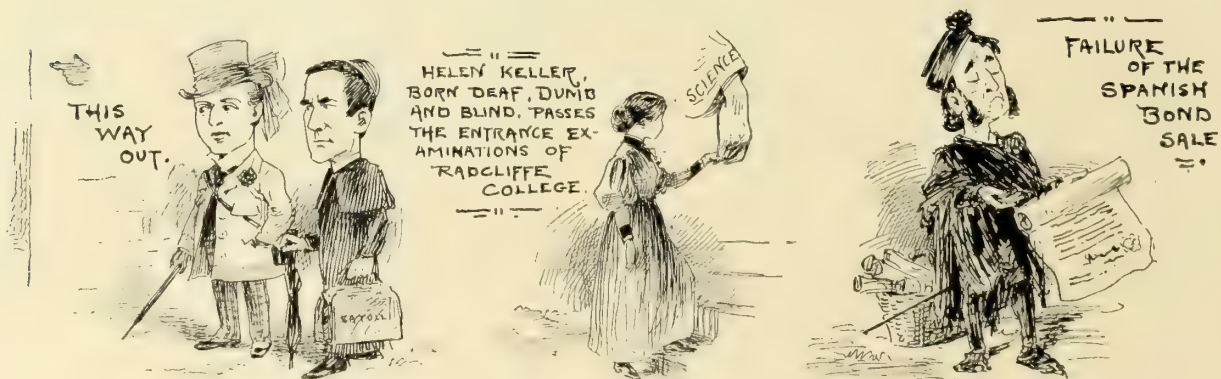 THIS
WAY
OUT.
HELEN KELLER,
BORN DEAF, DUMB
AND BLIND, PASSES
THE ENTRANCE EX-
AMINATIONS OF
RADCLIFFE
COLLEGE.
SCIENCE
SATOLLI
FAILURE
OF THE
SPANISH
BOND
SALE